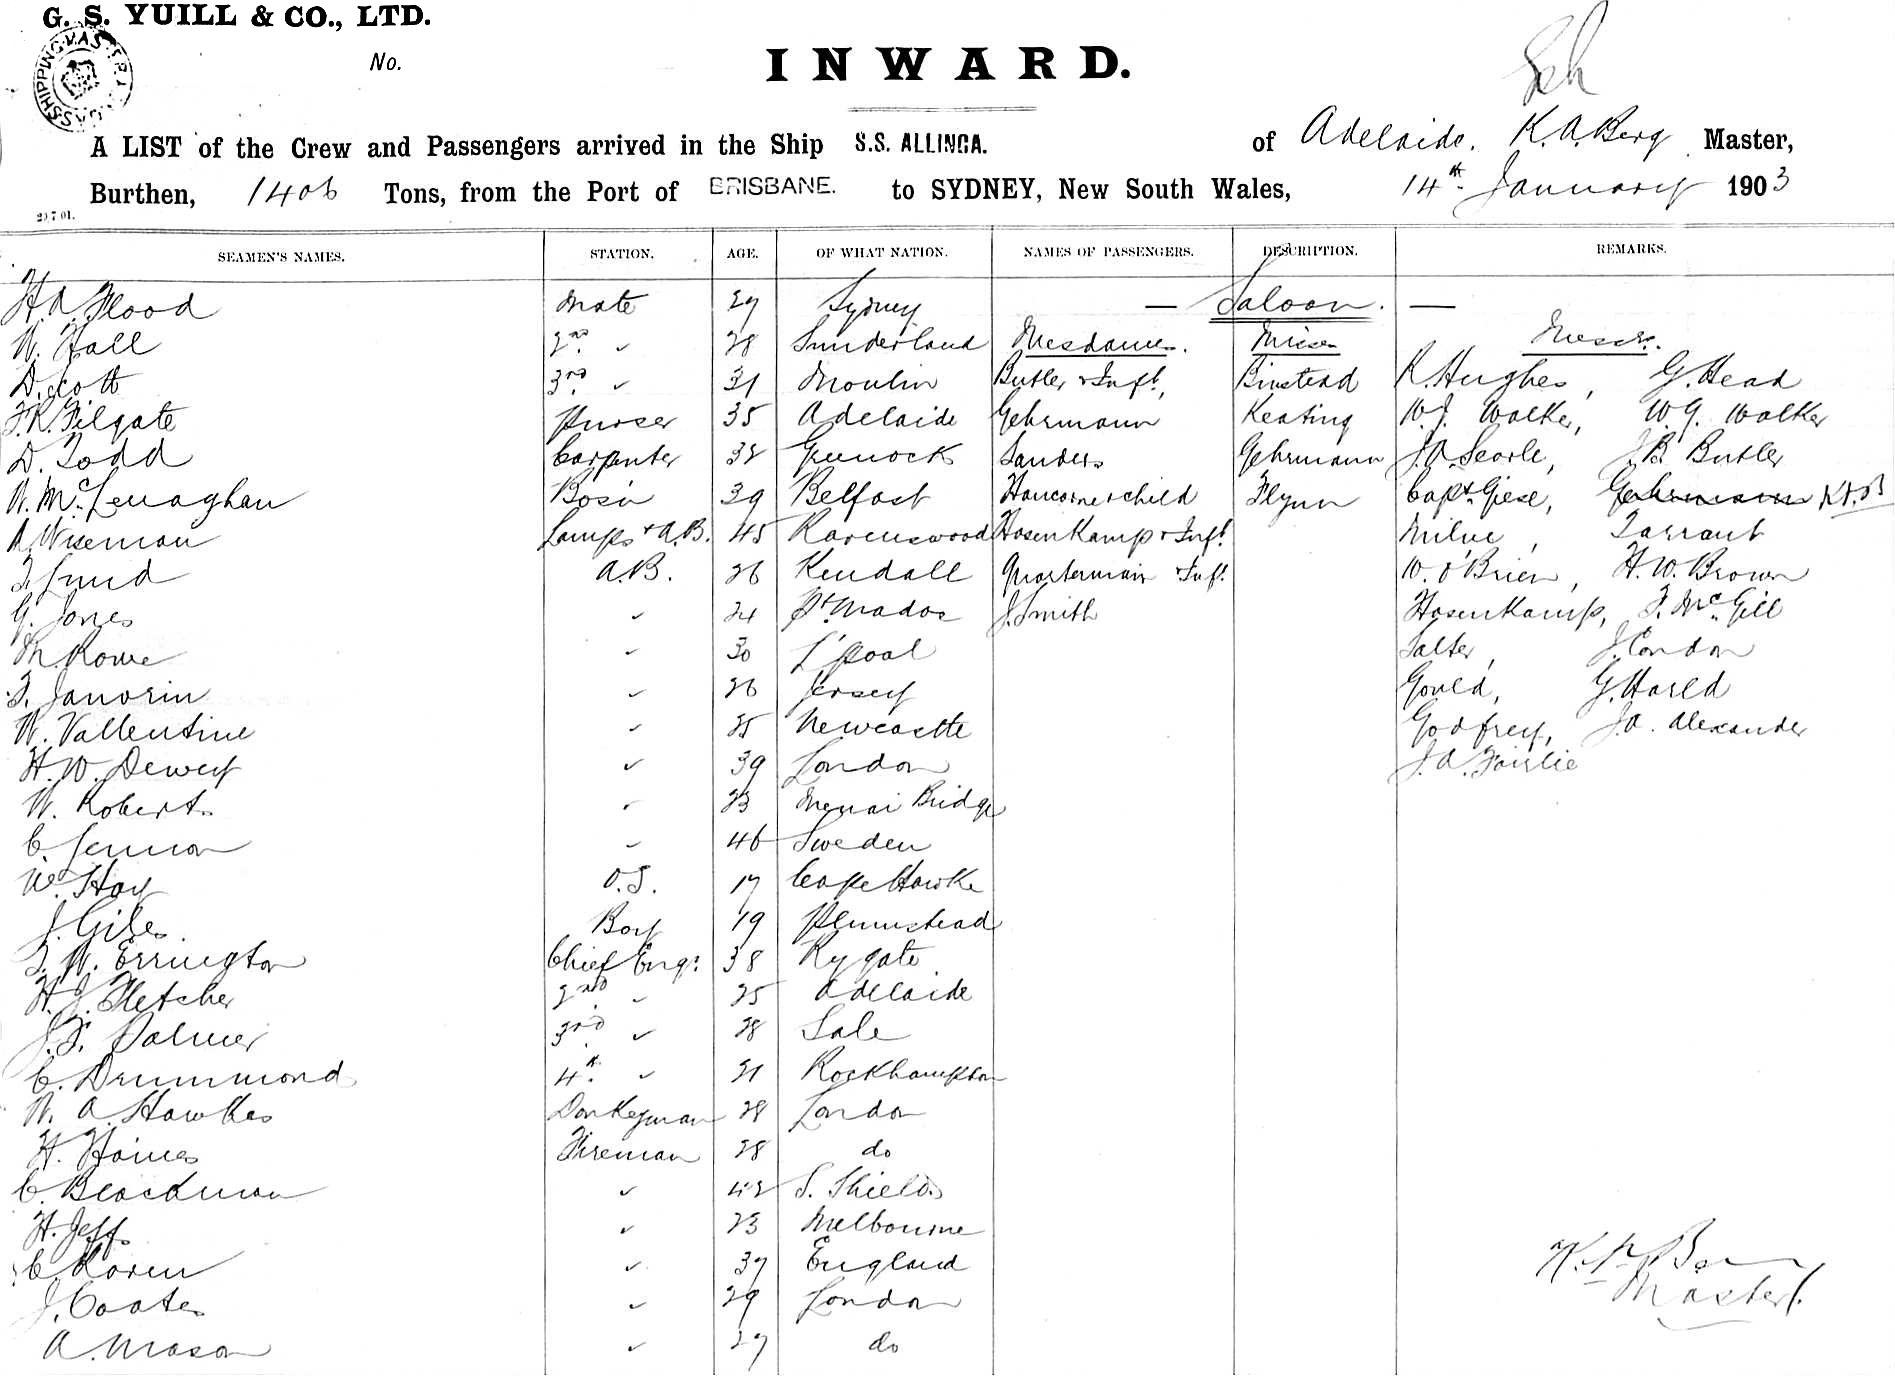 G. S. YUILL & CO., LTD.
SHIPPING MASTER
No.
INWARD.
A LIST of the Crew and Passengers arrived in the Ship S.S. ALLINGA. of Adelaide. K.A. Berg Master,
Burthen, 1406 Tons, from the Port of BRISBANE. to SYDNEY, New South Wales, 14th January 1903
SEAMEN'S NAMES. STATION. AGE. OF WHAT NATION. NAMES OF PASSENGERS. DESCRIPTION. REMARKS.
H.A. Flood Mate 29 Sydney — Saloon. —
W. Hall 2nd. ✓ 28 Sunderland Mesdames. Misses Messrs.
D. Scott 3rd. ✓ 31 Moulin Butler & Inft, Binstead R. Hughes, G. Head
F.R. Filgate Purser 35 Adelaide Gehrmann Keating W.J. Walker, W.G. Walker
D. Todd Carpenter 32 Greenock Sanders Gehrmann J.A. Searle, J.B. Butler
W. McLenaghan Bosn 39 Belfast Hancorne & child Flynn Capt. Giese, Gehrmann K.A.B
A. Wiseman Lamps & A.B. 45 Ravenswood Hosenkamp & Inft. Milne, Tarrant
T. Lund A.B. 26 Kendall Quarterman & Inft. W. O'Brien, H.W. Brown
G. Jones ✓ 24 Pt. Mados J. Smith Hosenkamp, T. McGill
M. Rowe ✓ 30 L'pool Salter, J. Condon
F. Janvrin ✓ 26 Jersey Gould, G. Harld
W. Vallentine ✓ 25 Newcastle Godfrey, J.A. Alexander
H.W. Dewey ✓ 39 London J.A. Fairlie
W. Roberts ✓ 23 Menai Bridge
C. Jennon ✓ 46 Sweden
Wm Hoy O.S. 17 Cape Hawke
J. Giles Boy 19 Plumstead
T.W. Errington Chief Engr. 38 Rygate
H.J. Fletcher 2nd. ✓ 25 Adelaide
J.F. Palmer 3rd. ✓ 28 Sale
C. Drummond 4th. ✓ 21 Rockhampton
W.A. Hawkes Donkeyman 28 London
H. Haines Fireman 28 do
C. Blackman ✓ 42 S. Shields
H. Jeffs ✓ 23 Melbourne
C. Koren ✓ 37 England
K.A. Berg
J. Coates ✓ 29 London
Master.
A. Mason ✓ 27 do